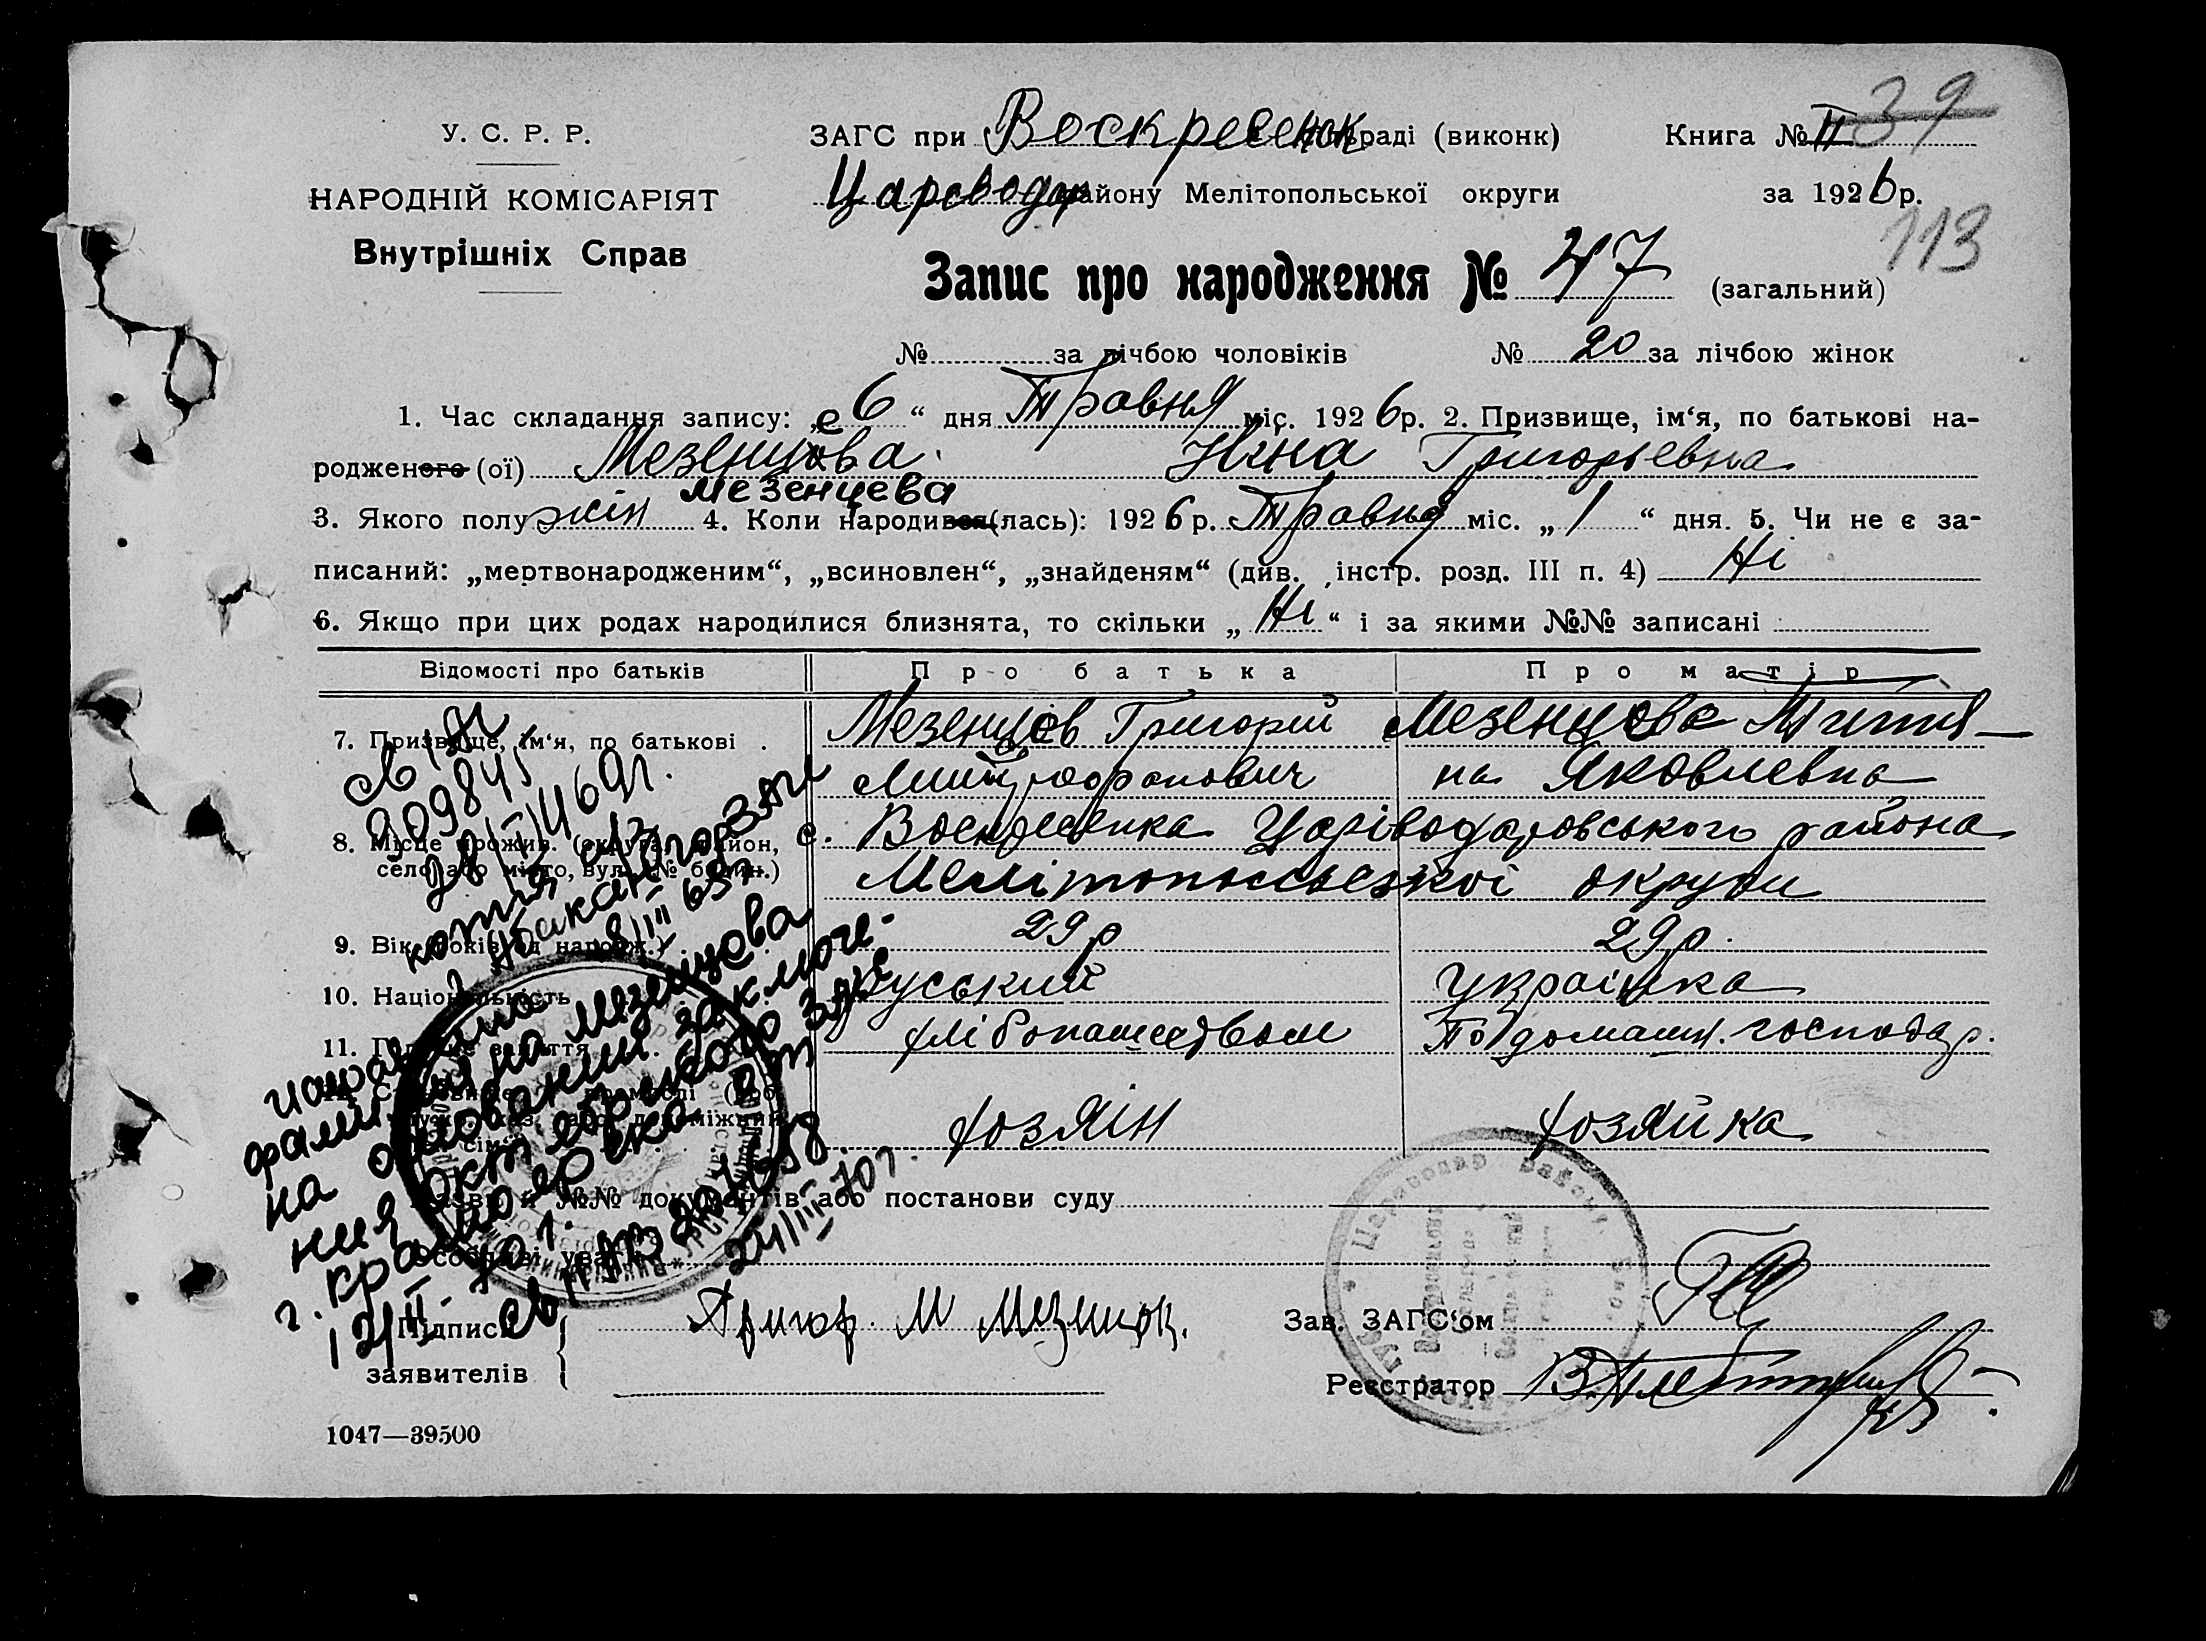 У. С. Р. Р.
НАРОДНІЙ КОМІСАРІЯТ
Внутрішніх Справ
ЗАГС при Воскресенск раді (виконк)
Царевода району Мелітопольської округи
Книга № II 39
за 1926 р.
113
Запис про народження № 47 (загальний)
№ за лічбою чоловіків № 20 за лічбою жінок
1. Час складання запису: „ 6 “ дня Травня міс. 1926 р. 2. Призвище, ім‘я, по батькові на-
родженого (ої) Мезенцова Ніна Григорьевна
Мезенцева
3. Якого полу жін 4. Коли народився (лась): 1926 р. Травня міс. „ 1 “ дня. 5. Чи не є за-
писаний: „мертвонародженим“, „всиновлен“, „знайденям“ (див. інстр. розд. III п. 4) Ні
6. Якщо при цих родах народилися близнята, то скільки „ Ні “ і за якими №№ записані
Відомості про батьків Про батька Про матір
7. Призвище, ім‘я, по батькові . Мезенцов Григорий Мезенцова
Митрофанович на Яковлевна
8. Місце прожив. (округа, район, с. Воскресенка Царіводаровського района
село або місто, вул. № будин.) Мелітопольської округи
9. Вік (років від народж.) 29 р 29 р.
10. Національність Руський Українка
11. занаття хлібопашедвом По домашн. господар.
хозяїн хозяйка
№№ документів або постанови суду
Особливі уваги
Підписи
заявителів
Григор. М
Зав. ЗАГС‘ом
Реєстратор
1047—39500
909845
копия
г. Абакан
8/III 65г
исправлено
фамилия на Мезенцова
на основании заключе-
ния Октябрьского ЗАГС
г. Красноярска от
12/II-70 г.
24/III-70 г.